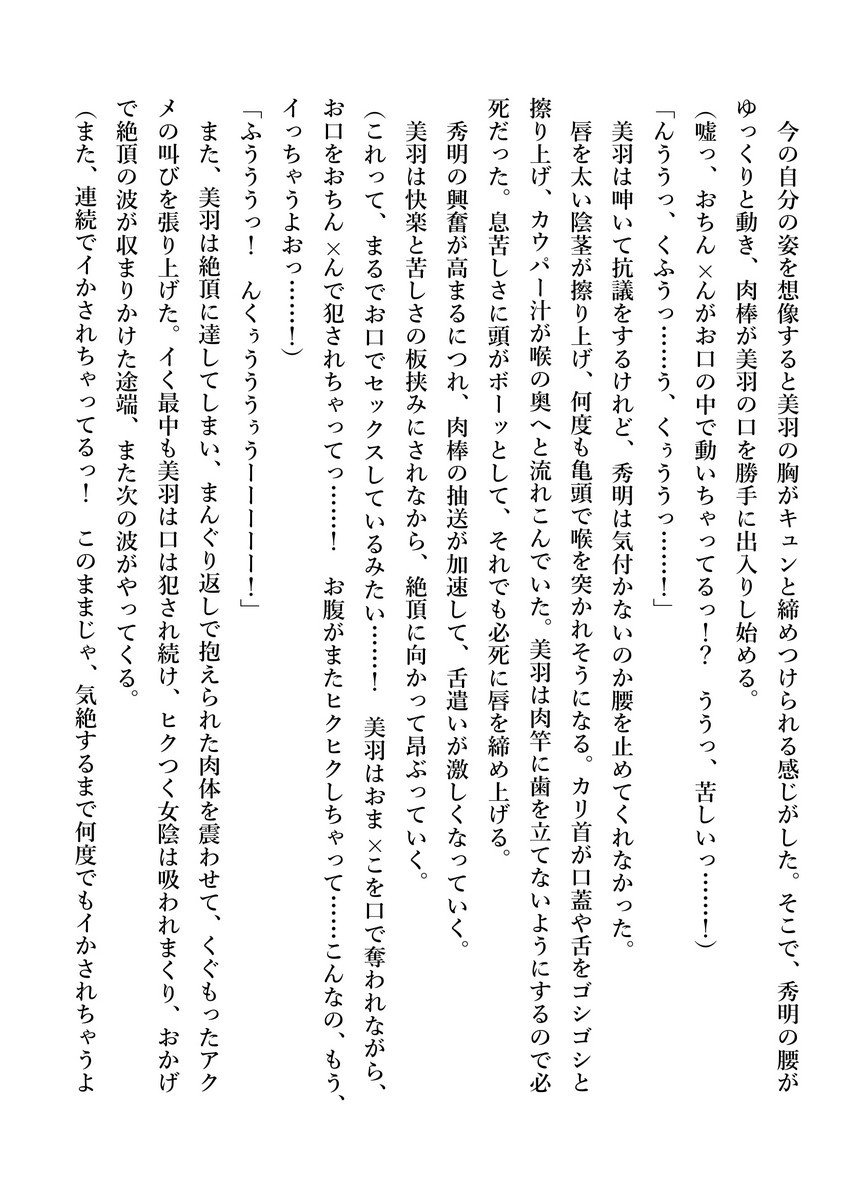 今の自分の姿を想像すると美羽の胸がキュンと締めつけられる感じがした。そこで、秀明の腰が
ゆっくりと動き、肉棒が美羽の口を勝手に出入りし始める。
(嘘っ、おちん×んがお口の中で動いちゃってるっ!?　ううっ、苦しいっ……!)
「んううっ、くふうっ……う、くぅううっ……!」
美羽は呻いて抗議をするけれど、秀明は気付かないのか腰を止めてくれなかった。
唇を太い陰茎が擦り上げ、何度も亀頭で喉を突かれそうになる。カリ首が口蓋や舌をゴシゴシと
擦り上げ、カウパー汁が喉の奥へと流れこんでいた。美羽は肉竿に歯を立てないようにするので必
死だった。息苦しさに頭がボーッとして、それでも必死に唇を締め上げる。
秀明の興奮が高まるにつれ、肉棒の抽送が加速して、舌遣いが激しくなっていく。
美羽は快楽と苦しさの板挟みにされなから、絶頂に向かって昂ぶっていく。
(これって、まるでお口でセックスしているみたい……!　美羽はおま×こを口で奪われながら、
お口をおちん×んで犯されちゃってっ……!　お腹がまたヒクヒクしちゃって……こんなの、もう、
イっちゃうよおっ……!)
「ふうううっ!　んくぅうううぅうーーーーー!」
また、美羽は絶頂に達してしまい、まんぐり返しで抱えられた肉体を震わせて、くぐもったアク
メの叫びを張り上げた。イく最中も美羽は口は犯され続け、ヒクつく女陰は吸われまくり、おかげ
で絶頂の波が収まりかけた途端、また次の波がやってくる。
(また、連続でイかされちゃってるっ!　このままじゃ、気絶するまで何度でもイかされちゃうよ